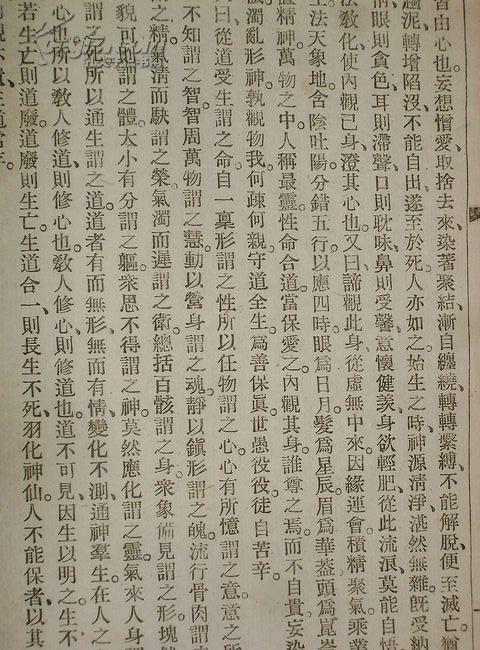 皆由心也。妄想憎愛、取捨去來、染著聚結、漸自纏繞、轉轉繫縛、不能解脫、便至滅亡。猶
趨泥、轉增陷沒、不能自出、遂至於死。人亦如之。始生之時、神源清淨、湛然無雜。既受納
眼則貪色、耳則滯聲、口則耽味、鼻則受馨、意懷健羨、身欲輕肥、從此流浪、莫能自悟
法教化、使內觀己身、澄其心也。又曰、諦觀此身、從虛無中來、因緣運會、積精聚氣、乘業
生、法天象地、含陰吐陽、分錯五行、以應四時。眼爲日月、髮爲星辰、眉爲華葢、頭爲崑
精神。萬物之中、人稱最靈、性命合道、當保愛之。內觀其身、誰尊之焉、而不自貴、妄染
濁亂形神、孰觀物我、何疎何親、守道全生、爲善保眞、世愚役役、徒自苦辛。
曰、從道受生謂之命、自一稟形謂之性、所以任物謂之心、心有所憶謂之意、意之所
不知謂之智、智周萬物謂之慧、動以營身謂之魂、靜以鎭形謂之魄、流行骨肉謂
之精、氣淸而駃謂之榮、氣濁而遲謂之衛、總括百骸謂之身、衆象備見謂之形、塊然
貌可則謂之體、大小有分謂之軀、衆思不得謂之神、莫然應化謂之靈、氣來人身
謂之死、所以通生謂之道。道者、有而無形、無而有情、變化不測、通神羣生。在人之
心也。所以教人修道、則修心也。教人修心、則修道也。道不可見、因生以明之。生不
若生亡則道廢、道廢則生亡、生道合一、則長生不死、羽化神仙。人不能保者、以其